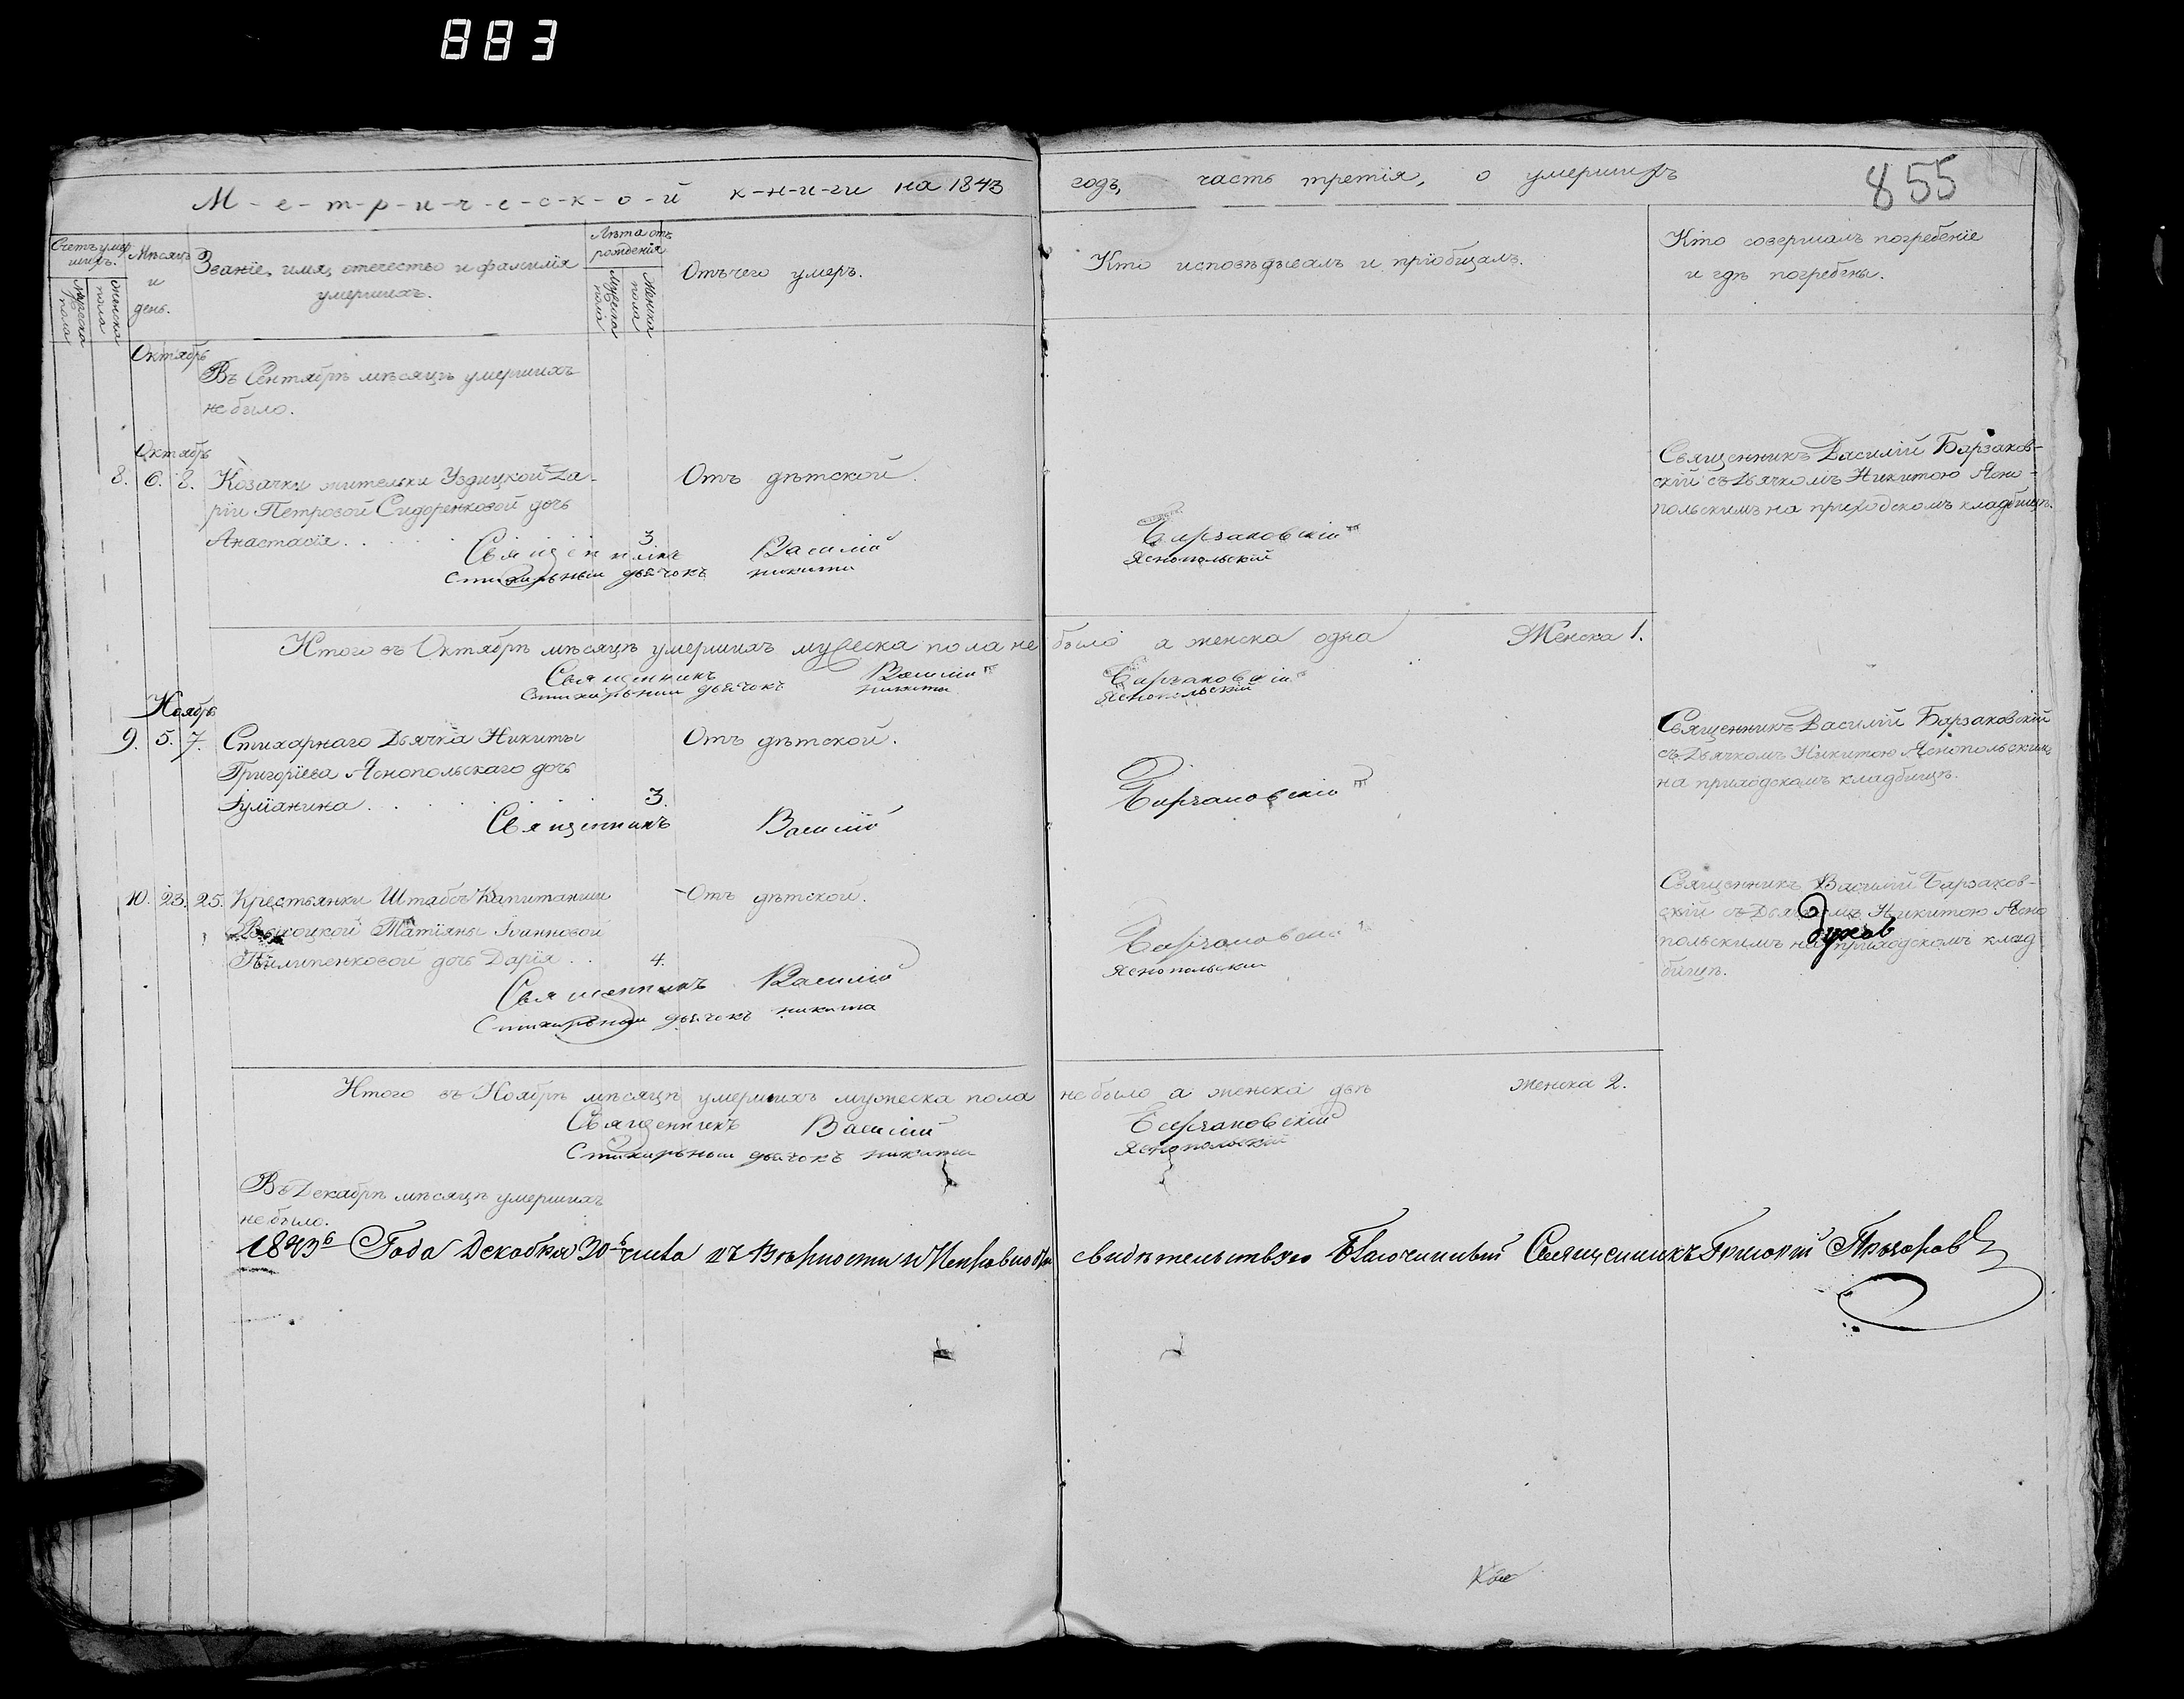 883
М-е-т-р-и-ч-е-с-к-о-й к-н-и-ги на 1843 годъ, часть третія, о умершихъ
855
Счетъ умер-
шихъ.
Мужеска пола
Женска пола
Мѣсяцъ
и
день.
Званіе, имя, отечество и фамилія
умершихъ.
Лѣта отъ
рожденія
Мужеска пола
Женска пола
Отъ чего умеръ.
Кто исповѣдывалъ и пріобщалъ.
Кто совершалъ погребеніе
и гдѣ погребены.
Октябрь
Въ Сентябрѣ мѣсяцѣ умершихъ
не было.
Октябрь
8. 6. 8. Козачки жительки Уздицкой Да-
ріи Петровой Сидоренковой дочь
Анастасія . . . 3.
Отъ дѣтской.
Священникъ Василій Барзаков-
скій съ Дьячкомъ Никитою Ясно-
польскимъ на приходскомъ кладбищѣ.
Священникъ Василій Барзаковскій
Стихарный дьячокъ Никита Яснопольскій
Итого въ Октябрѣ мѣсяцѣ умершихъ мужеска пола не было а женска одна Женска 1.
Священникъ Василій Барзаковскій
Стихарный дьячокъ Никита Яснопольскій
Ноябрь
9. 5. 7. Стихарнаго Дьячка Никиты
Григоріева Яснопольскаго дочь
Іуліанина . . . 3.
Отъ дѣтской.
Священникъ Василій Барзаковскій
съ Дьячкомъ Никитою Яснопольскимъ
на приходскомъ кладбищѣ.
Священникъ Василій Барзаковскій
10. 23. 25. Крестьянки Штабсъ Капитанши
Татіяны Іоанновой
Пилипенковой дочь Дарія . . 4.
Отъ дѣтской.
Священникъ Василій Барзаков-
скій съ Дьячкомъ Никитою Ясно
польскимъ на приходскомъ клад
бищѣ.
Священникъ Василій Барзаковскій
Стихарный дьячокъ Никита Яснопольскій
Итого въ Ноябрѣ мѣсяцѣ умершихъ мужеска пола не было а женска двѣ Женска 2.
Священникъ Василій Барзаковскій
Стихарный дьячокъ Никита Яснопольскій
Въ Декабрѣ мѣсяцѣ умершихъ
не было.
1843го Года Декабря 30го числа въ Вѣрности и Исправности свидѣтельствую Благочинный Священникъ